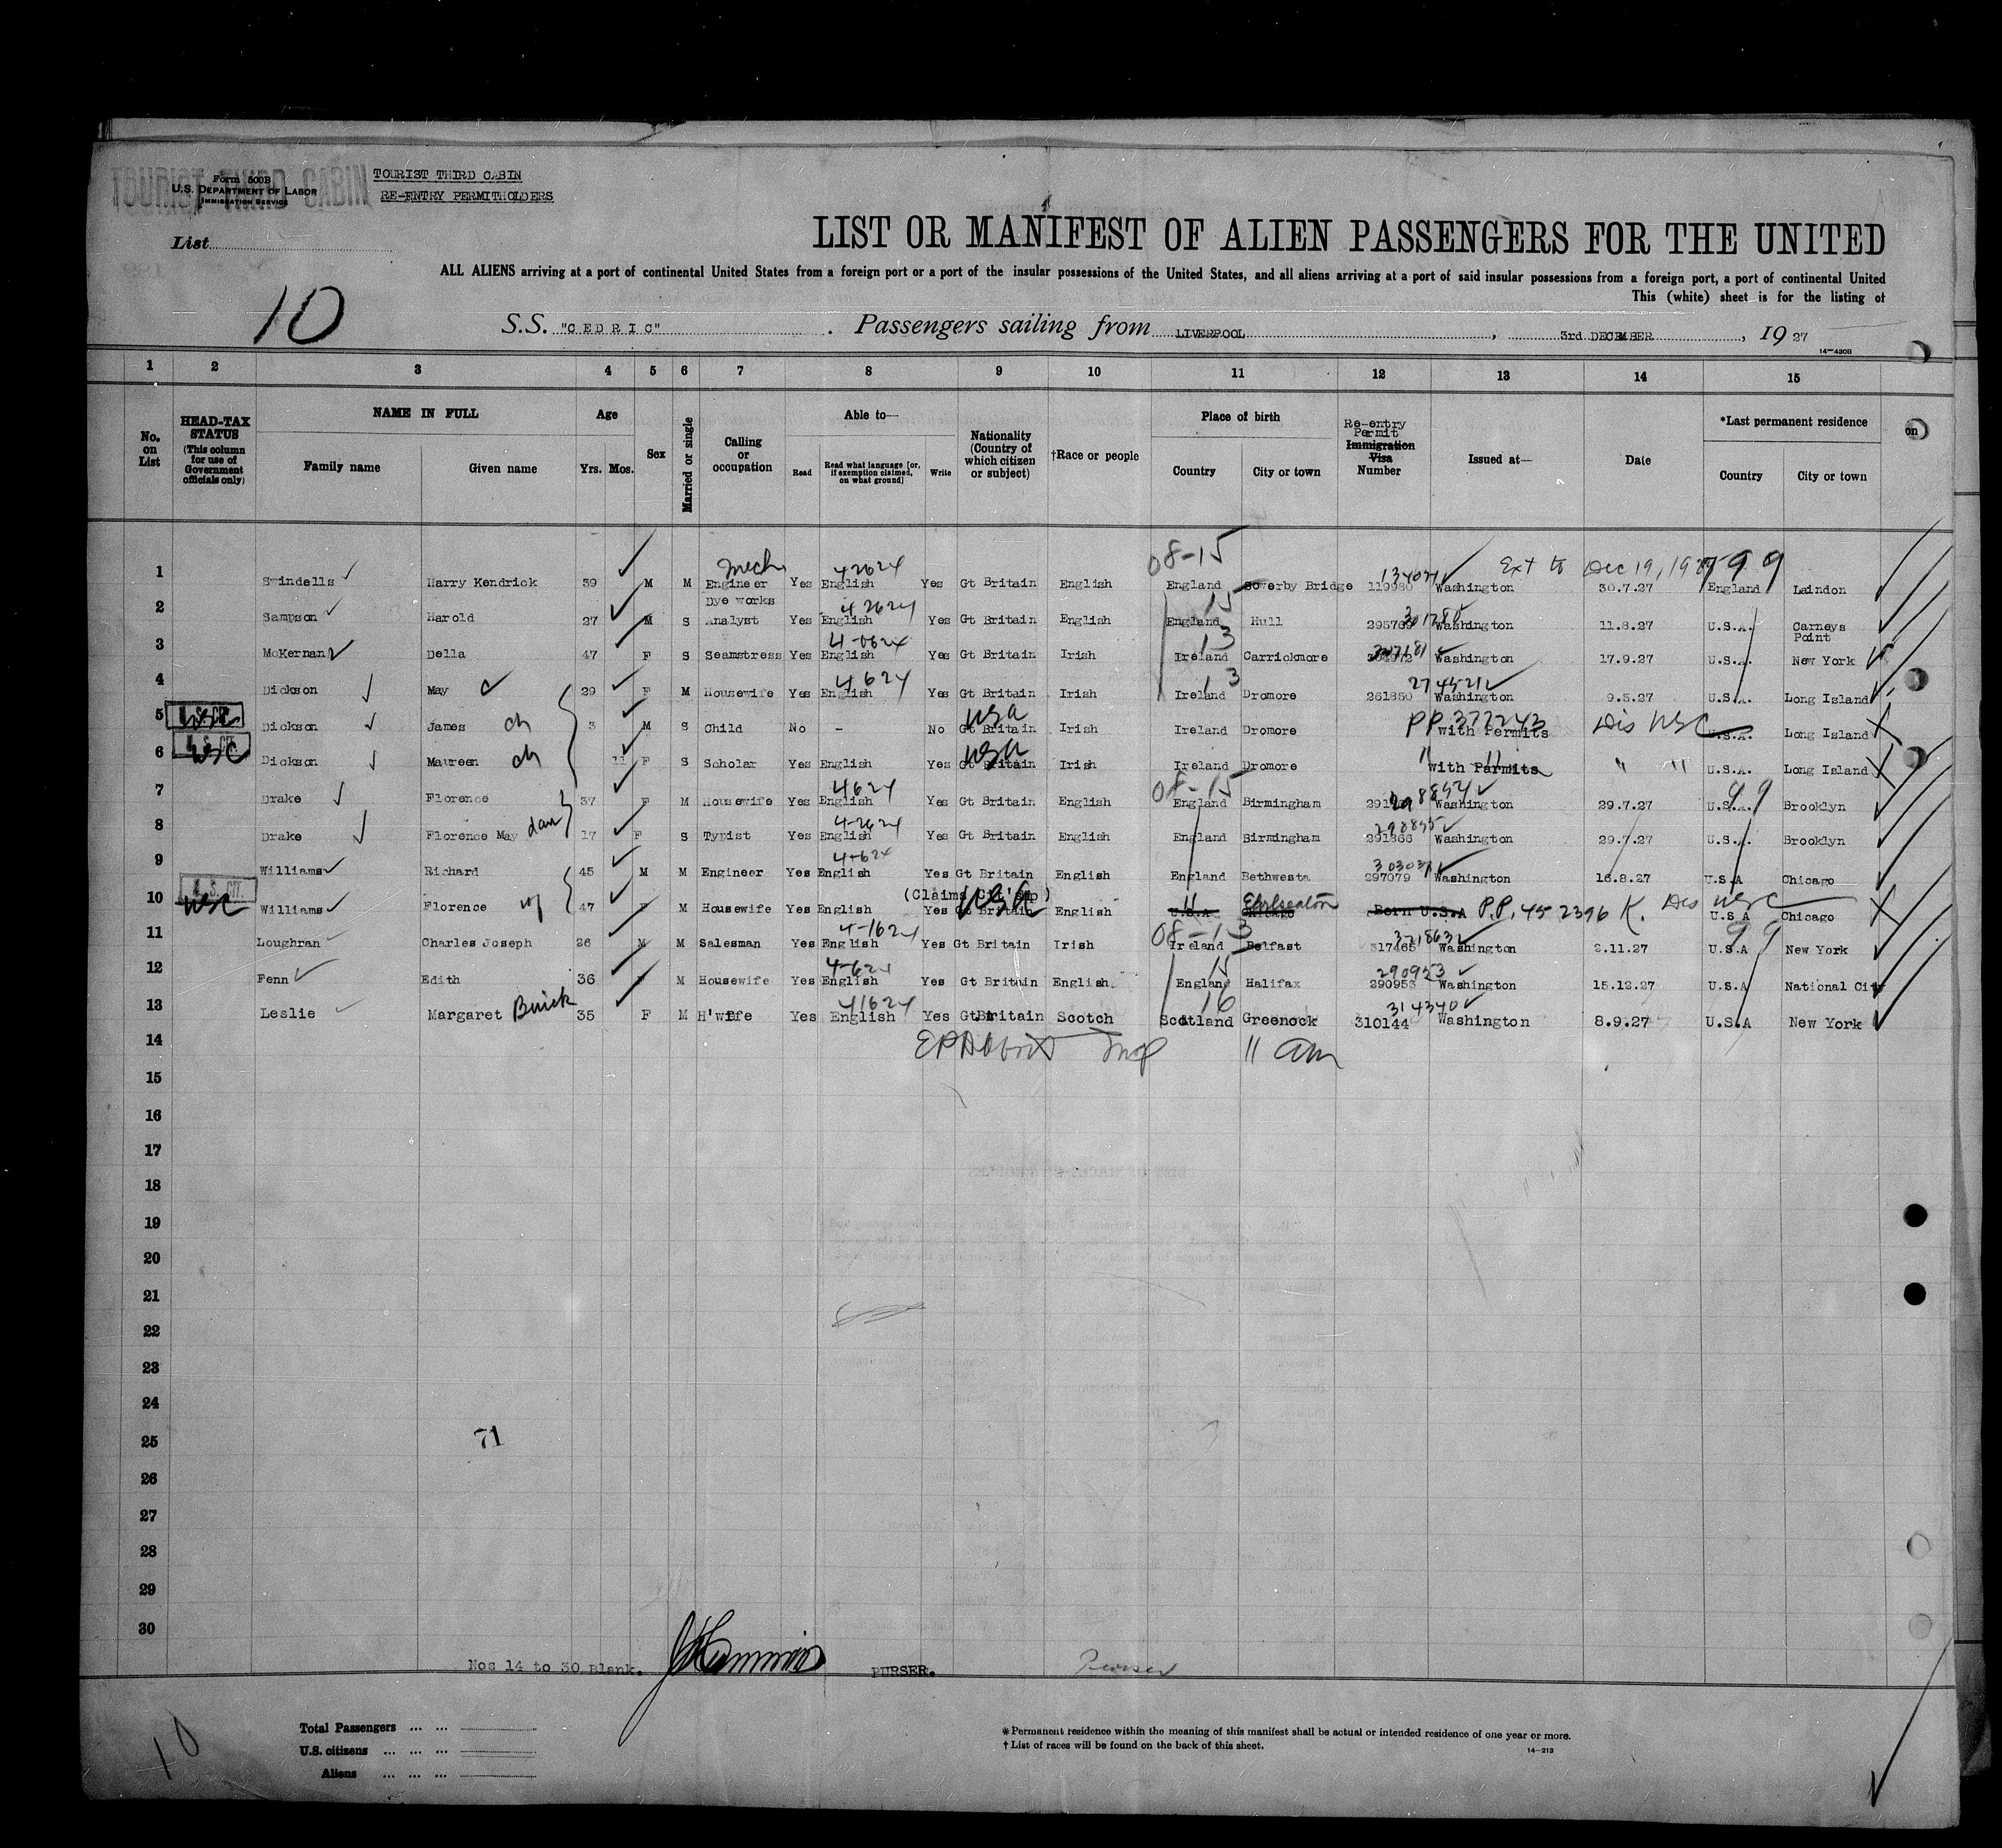 TOURIST THIRD CABIN
Form 500B
U.S. DEPARTMENT OF LABOR
IMMIGRATION SERVICE
TOURIST THIRD CABIN
RE-ENTRY PERMITHOLDERS
List
LIST OR MANIFEST OF ALIEN PASSENGERS FOR THE UNITED
ALL ALIENS arriving at a port of continental United States from a foreign port or a port of the insular possessions of the United States, and all aliens arriving at a port of said insular possessions from a foreign port, a port of continental United
This (white) sheet is for the listing of
10
S.S. "CEDRIC" . Passengers sailing from LIVERPOOL , 3rd DECEMBER , 19 27
14—430B
1 2 3 4 5 6 7 8 9 10 11 12 13 14 15
No. on List
HEAD-TAX STATUS (This column for use of Government officials only)
NAME IN FULL
Family name Given name
Age
Yrs. Mos.
Sex
Married or single
Calling or occupation
Able to—
Read Read what language [or, if exemption claimed, on what ground] Write
Nationality (Country of which citizen or subject)
†Race or people
Place of birth
Country City or town
Re-entry Permit Immigration Visa Number
Issued at—
Date
*Last permanent residence
Country City or town
on
08-15
Mech 42624 134021 Ext to Dec 19, 1927 99
1 Swindells Harry Kendrick 39 M M Engineer Yes English Yes Gt Britain English England Soverby Bridge 119980 Washington 30.7.27 England Laindon
Dye works 42624 15 301780
2 Sampson Harold 27 M S Analyst Yes English Yes Gt Britain English England Hull 295769 Washington 11.8.27 U.S.A. Carneys Point
4-0624 13
3 McKernan Della 47 F S Seamstress Yes English Yes Gt Britain Irish Ireland Carrickmore Washington 17.9.27 U.S.A. New York
4624 13 274521
4 Dickson May 29 F M Housewife Yes English Yes Gt Britain Irish Ireland Dromore 261850 Washington 9.5.27 U.S.A. Long Island
U.S. CIT. USC ch USA PP. 377243 Dis USC
5 Dickson James 3 M S Child No - No Gt Britain Irish Ireland Dromore with Permits U.S.A. Long Island
U.S. CIT. USC ch USA " " " "
6 Dickson Maureen 11 F S Scholar Yes English Yes Gt Britain Irish Ireland Dromore with Permits U.S.A. Long Island
4624 08-15 298854 99
7 Drake Florence 37 F M Housewife Yes English Yes Gt Britain English England Birmingham Washington 29.7.27 U.S.A. Brooklyn
dau 4-2624 298855
8 Drake Florence May 17 F S Typist Yes English Yes Gt Britain English England Birmingham 291866 Washington 29.7.27 U.S.A. Brooklyn
4-624 303031
9 Williams Richard 45 M M Engineer Yes English Yes Gt Britain English England Bethwesta 297079 Washington 16.8.27 U.S.A Chicago
U.S. CIT. USC wf USA 11 P.P. 452396 K. Dis USC
10 Williams Florence 47 F M Housewife Yes English Yes Gt Britain English U.S.A Chicago Born U.S.A U.S.A Chicago
4-1624 08-13 321863 99
11 Loughran Charles Joseph 26 M M Salesman Yes English Yes Gt Britain Irish Ireland Belfast 317465 Washington 2.11.27 U.S.A New York
4-624 15 290953
12 Fenn Edith 36 F M Housewife Yes English Yes Gt Britain English England Halifax 290953 Washington 15.12.27 U.S.A National City
Buick 41624 16 314340
13 Leslie Margaret 35 F M H'wife Yes English Yes Gt Britain Scotch Scotland Greenock 310144 Washington 8.9.27 U.S.A New York
14 11 am
15
16
17
18
19
20
21
22
23
24
25 71
26
27
28
29
30
Nos 14 to 30 Blank. PURSER. Purser
10
Total Passengers ... ...
U.S. citizens ... ... ...
Aliens ... ... ...
* Permanent residence within the meaning of this manifest shall be actual or intended residence of one year or more.
† List of races will be found on the back of this sheet.
14—213